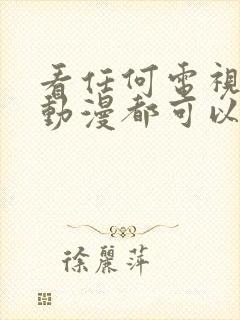 看任何電視
動漫都可以
徐麗萍